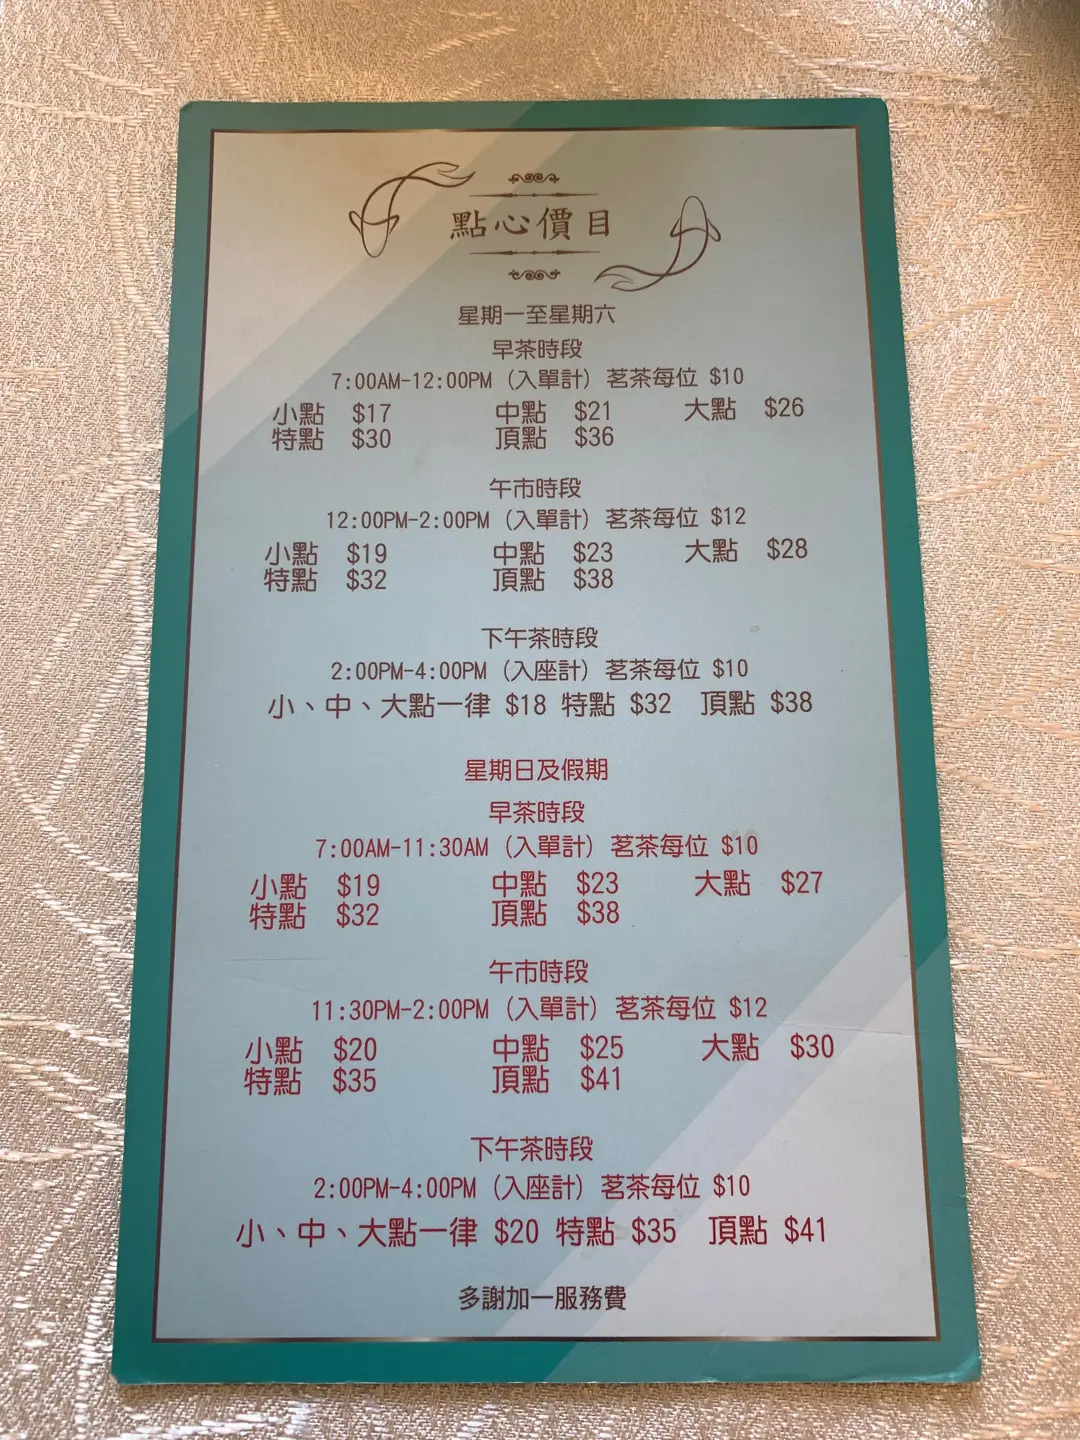 點心價目
星期一至星期六
早茶時段
7:00AM-12:00PM (入單計) 茗茶每位 $10
小點 $17 中點 $21 大點 $26
特點 $30 頂點 $36
午市時段
12:00PM-2:00PM (入單計) 茗茶每位 $12
小點 $19 中點 $23 大點 $28
特點 $32 頂點 $38
下午茶時段
2:00PM-4:00PM (入座計) 茗茶每位 $10
小、中、大點一律 $18 特點 $32 頂點 $38
星期日及假期
早茶時段
7:00AM-11:30AM (入單計) 茗茶每位 $10
小點 $19 中點 $23 大點 $27
特點 $32 頂點 $38
午市時段
11:30PM-2:00PM (入單計) 茗茶每位 $12
小點 $20 中點 $25 大點 $30
特點 $35 頂點 $41
下午茶時段
2:00PM-4:00PM (入座計) 茗茶每位 $10
小、中、大點一律 $20 特點 $35 頂點 $41
多謝加一服務費